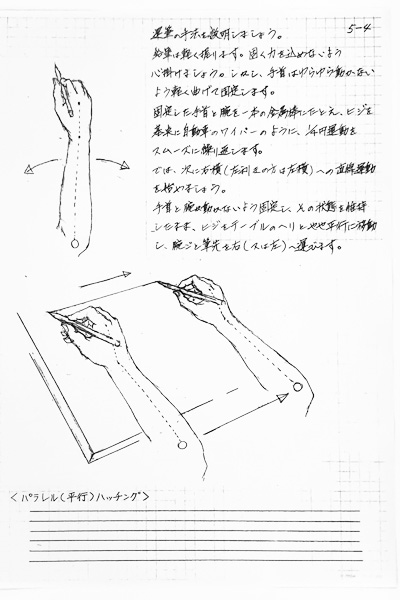 5-4
運筆の手永を説明しましょう。
鉛筆は軽く握ります。固く力を込めないよう
心掛けましょう。しかし、手首はゆらゆら動かない
よう軽く曲げて固定します。
固定した手首と腕を一本の金属棒にたとえ、ヒジを
基点に自動車のワイパーのように、1/4円運動を
スムーズに繰り返します。
では、次に右横(左利きの方は左横)への直線運動
を始めましょう。
手首と腕が動かないよう固定し、その状態を維持
したまま、ヒジをテーブルのヘリとやや平行に移動
し、腕ごと筆先を右(又は左)へ運びます。
<パラレル(平行)ハッチング>